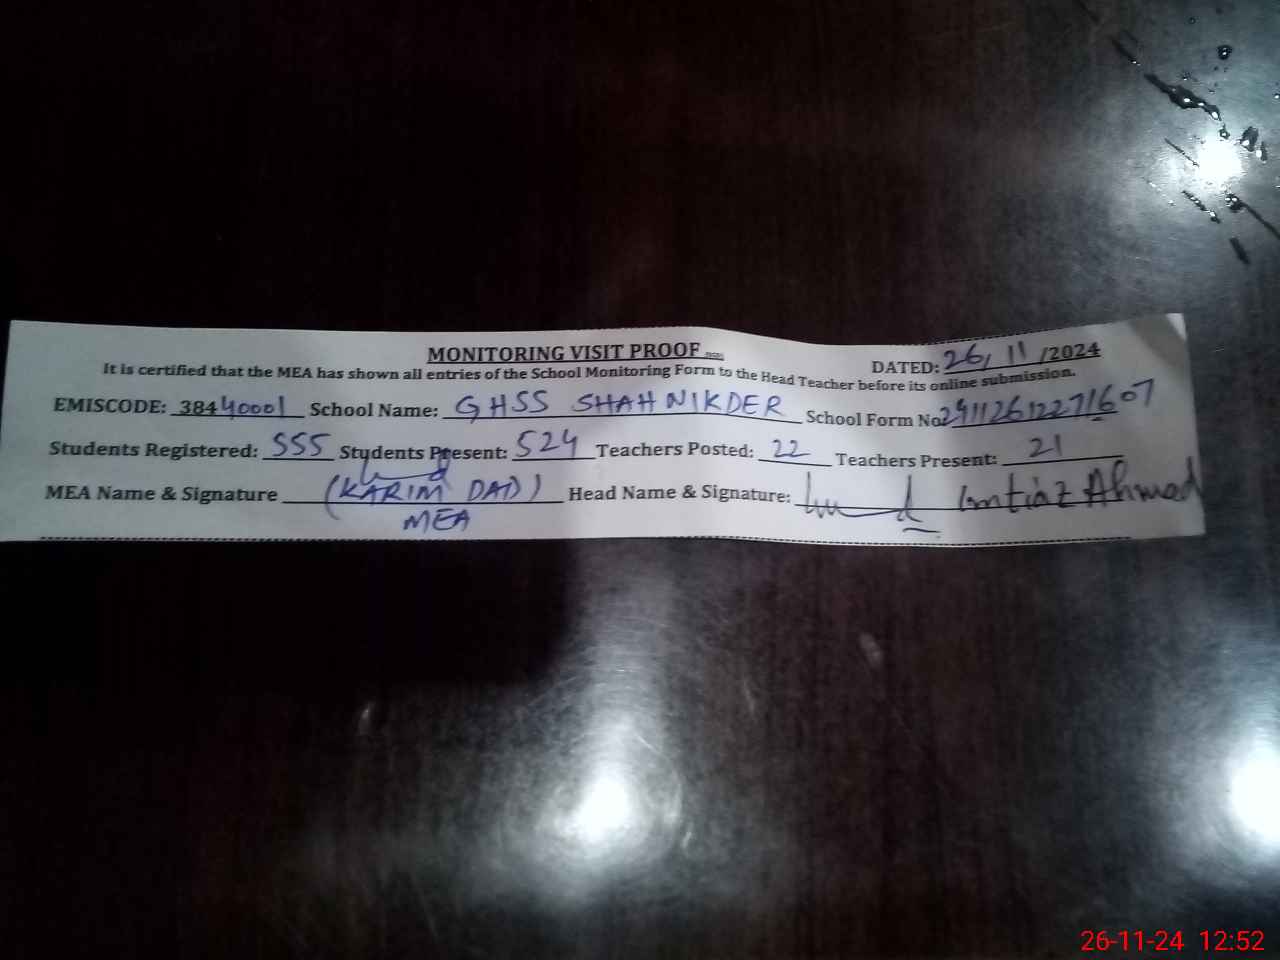 MONITORING VISIT PROOF
DATED: 26, 11 /2024
It is certified that the MEA has shown all entries of the School Monitoring Form to the Head Teacher before its online submission.
EMISCODE: 38440001 School Name: GHSS SHAHNIKDER School Form No 2411261227 1607
Students Registered: 555 Students Present: 524 Teachers Posted: 22 Teachers Present: 21
MEA Name & Signature (KARIM DAD) Head Name & Signature: Imtiaz Ahmad
MEA
26-11-24 12:52